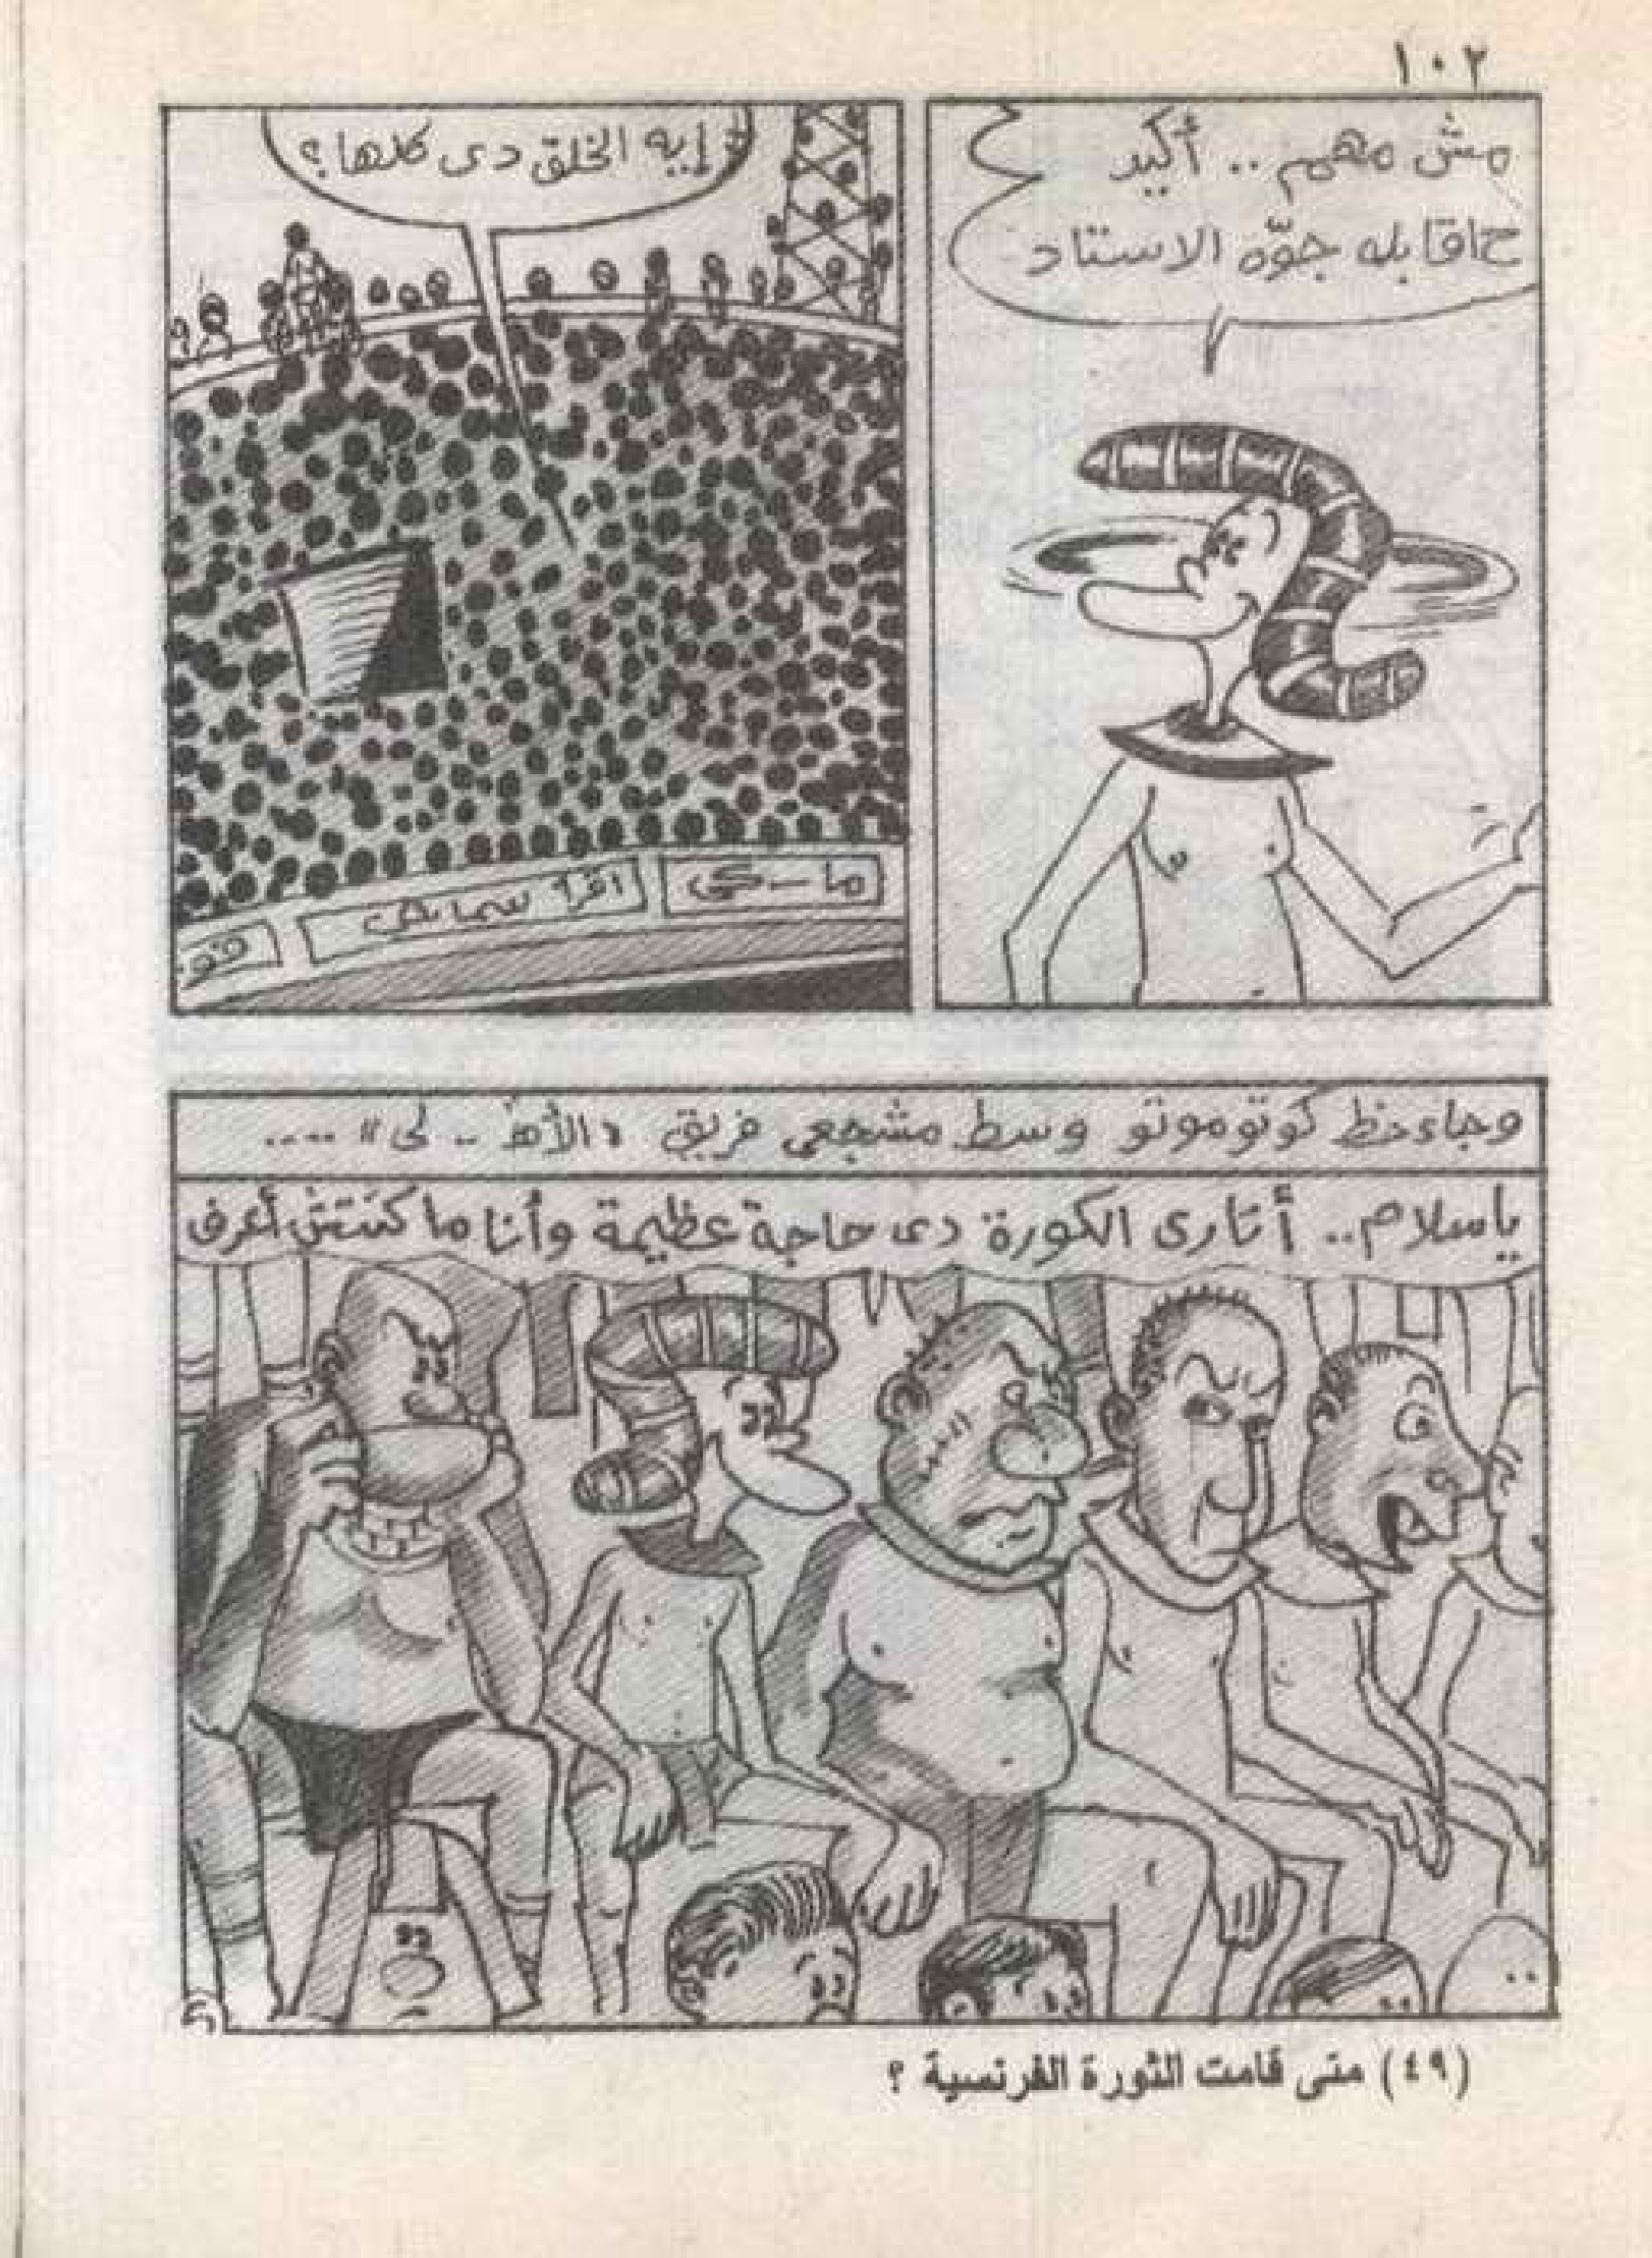 ١٠٢
مش مهم .. أكيد
حاقابله جوّه الاستاد
إيه الخلق دى كلها؟
ما - كي
اقرأ سماش
فو
وجاء حظ كوتوموتو وسط مشجعى فريق «الأهـ .. لى» ....
ياسلام .. أتارى الكورة دى حاجة عظيمة وأنا ما كنتش أعرف
(٤٩) متى قامت الثورة الفرنسية ؟